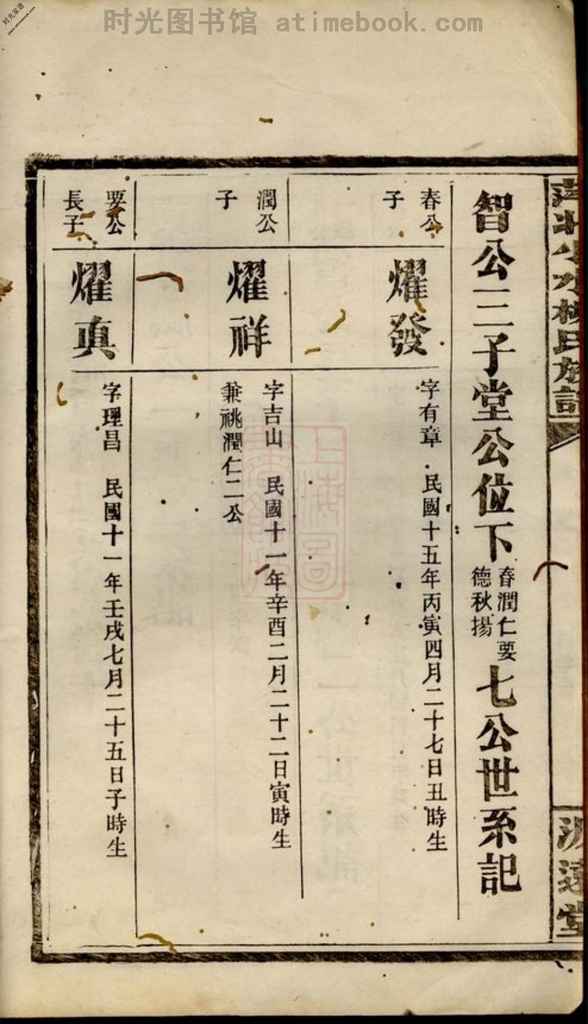 时光图书馆 atimebook.com
智公三子堂公位下春潤仁要德秋揚七公世系記
春公子
燿發
字有章 民國十五年丙寅四月二十七日丑時生
潤公子
燿祥
字吉山 民國十一年辛酉二月二十二日寅時生
兼祧潤仁二公
要公長子
燿真
字理昌 民國十一年壬戌七月二十五日子時生
源遠堂